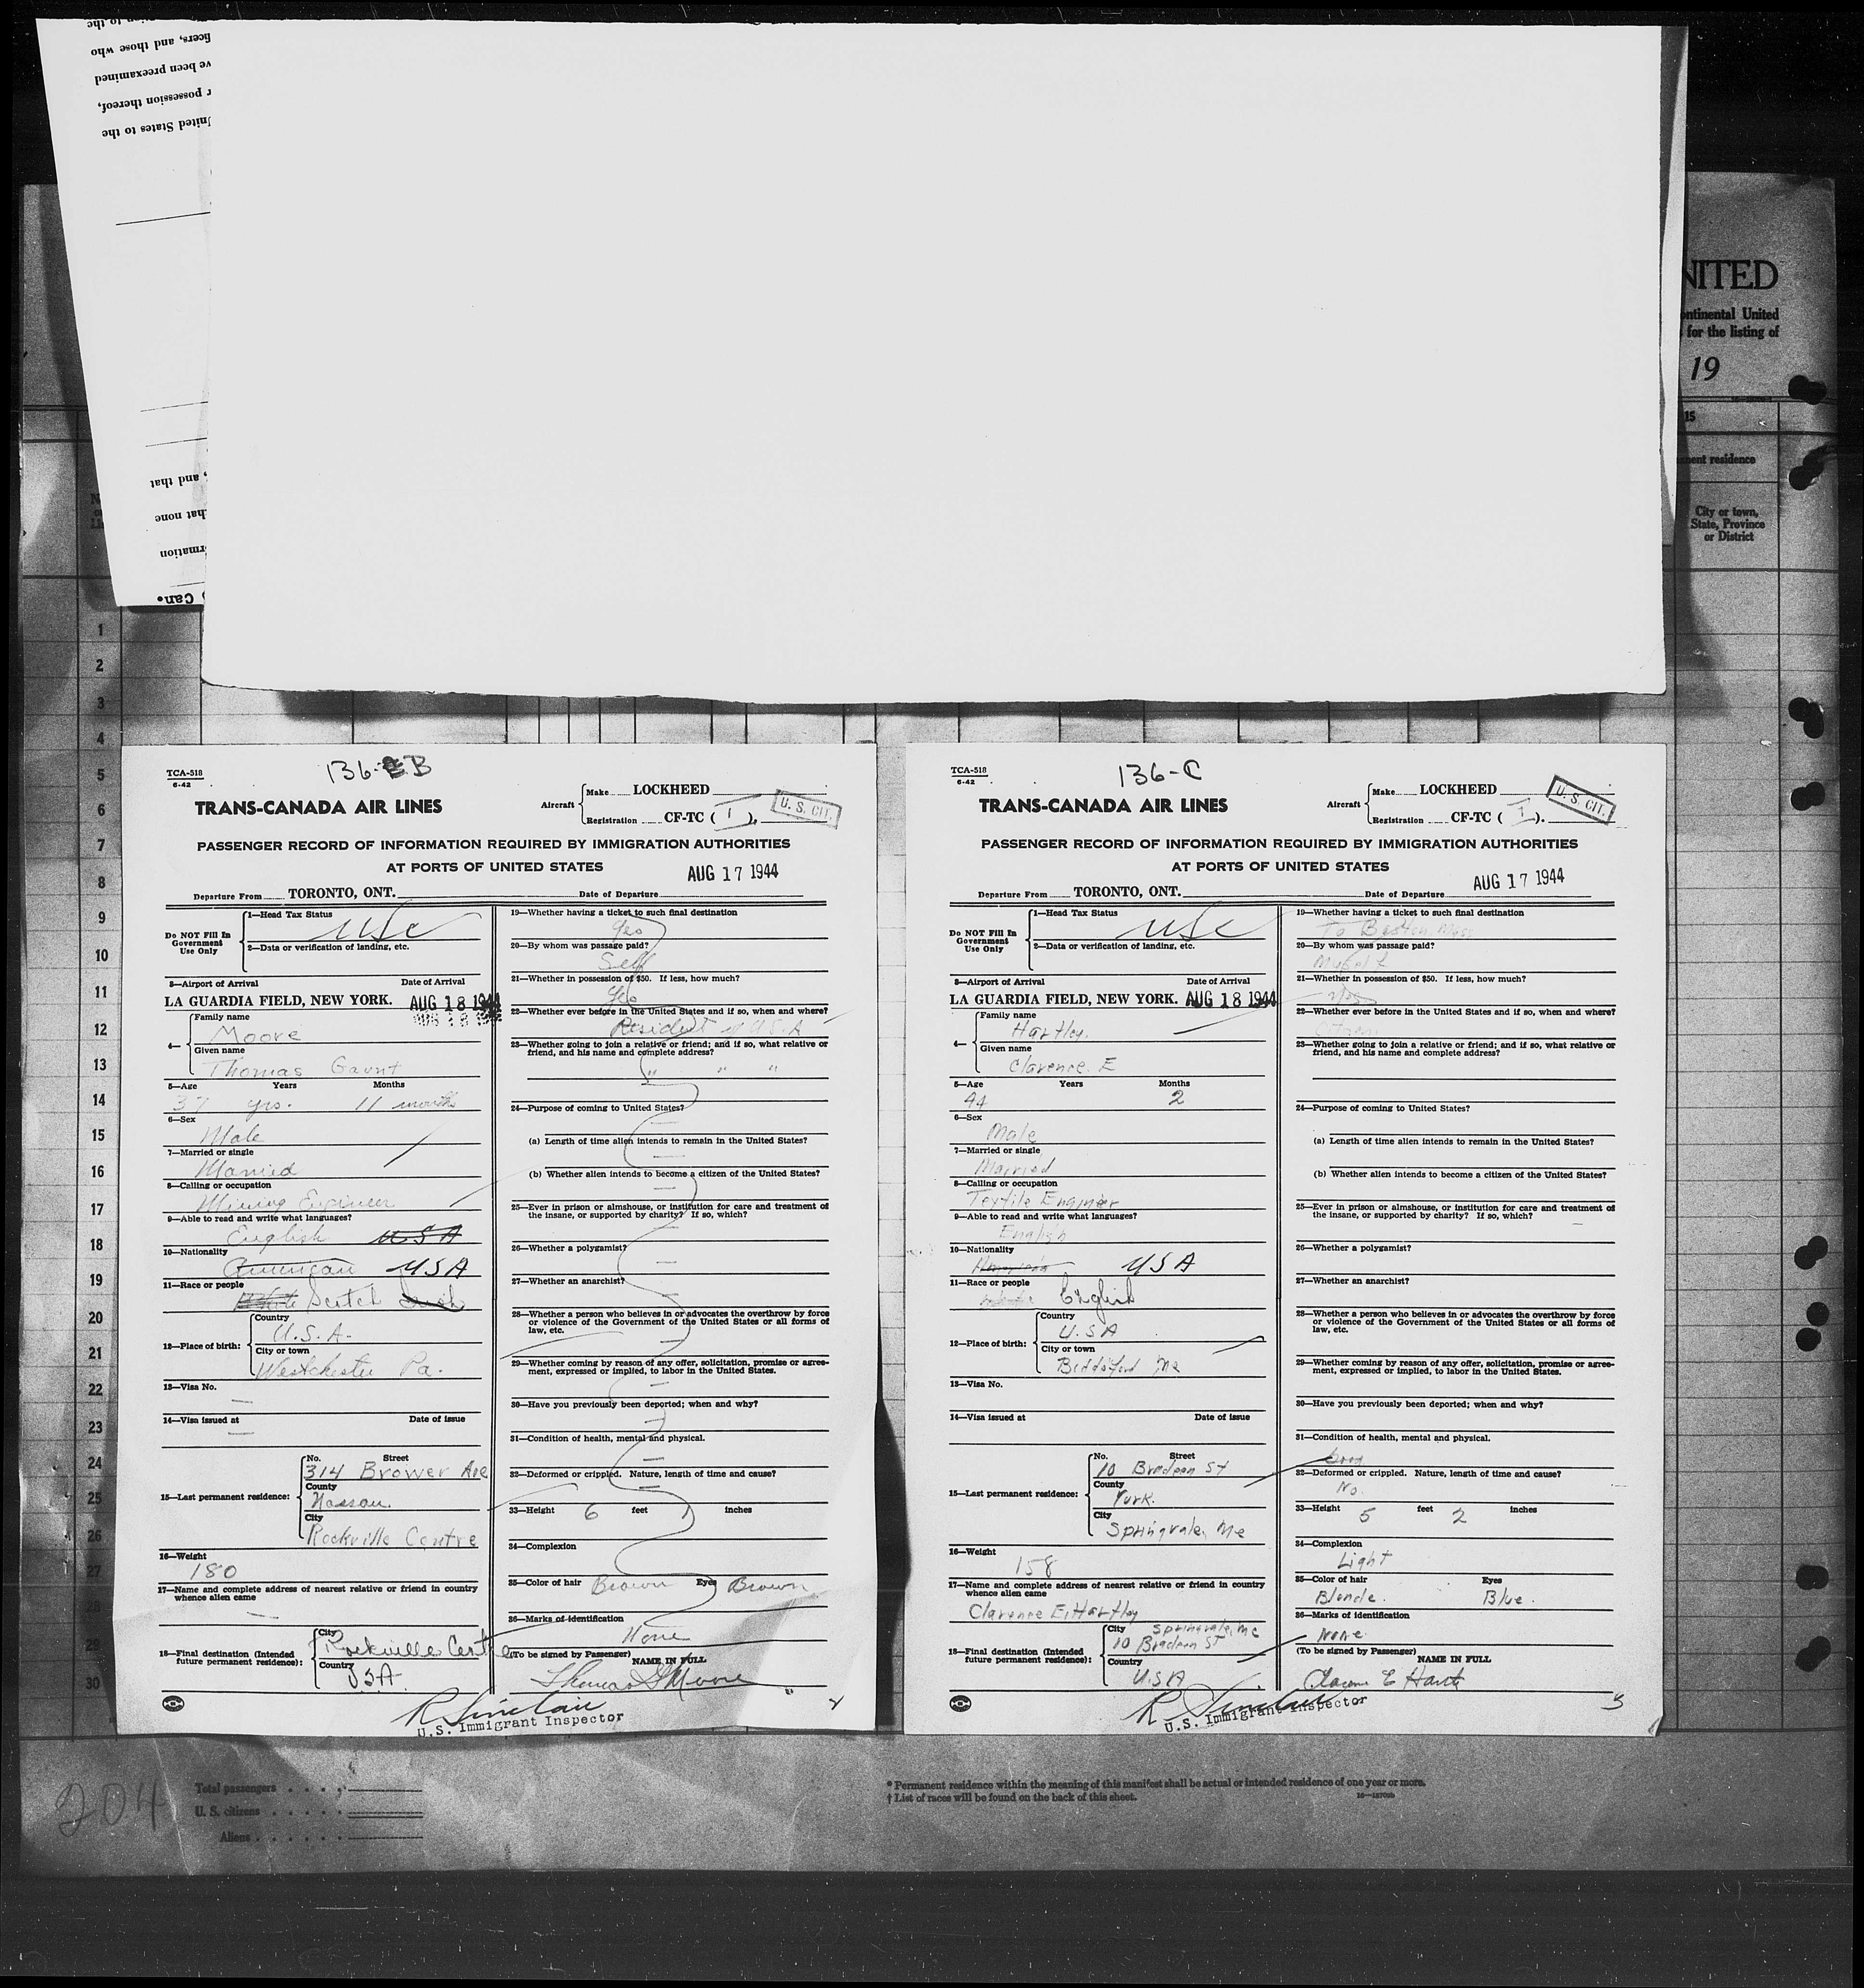 ficers, and those who
ve been preexamined
r possession thereof,
United States to the
, and that
hat none
rmation
Can.
NITED
ontinental United
for the listing of
19
15
nent residence
City or town,
State, Province
or District
1
2
3
4
5
6
7
8
9
10
11
12
13
14
15
16
17
18
19
20
21
22
23
24
25
26
27
28
29
30
TCA-518
6-42
136-B
TRANS-CANADA AIR LINES
Aircraft
Make LOCKHEED
Registration CF-TC ( 1 ).
U. S. CIT.
PASSENGER RECORD OF INFORMATION REQUIRED BY IMMIGRATION AUTHORITIES
AT PORTS OF UNITED STATES
AUG 17 1944
Departure From TORONTO, ONT. Date of Departure
Do NOT Fill In Government Use Only
1—Head Tax Status
USC
2—Data or verification of landing, etc.
3—Airport of Arrival Date of Arrival
LA GUARDIA FIELD, NEW YORK. AUG 18 1944
AUG 18 1944
4—
Family name
Moore
Given name
Thomas Gaunt
5—Age Years Months
37 yrs. 11 months
6—Sex
Male
7—Married or single
Married
8—Calling or occupation
Mining Engineer
9—Able to read and write what languages?
English USA
10—Nationality
American USA
11—Race or people
White Scotch Irish
12—Place of birth:
Country
U.S.A.
City or town
Westchester Pa.
13—Visa No.
—
14—Visa issued at Date of issue
—
15—Last permanent residence:
No. Street
314 Brower Ave
County
Nassau
City
Rockville Centre
16—Weight
180
17—Name and complete address of nearest relative or friend in country
whence alien came
—
18—Final destination (Intended
future permanent residence):
City
Rockville Centre
Country
USA
19—Whether having a ticket to such final destination
Yes
20—By whom was passage paid?
Self
21—Whether in possession of $50. If less, how much?
Yes
22—Whether ever before in the United States and if so, when and where?
Resident of U.S.A
23—Whether going to join a relative or friend; and if so, what relative or
friend, and his name and complete address?
" " "
24—Purpose of coming to United States?
—
(a) Length of time alien intends to remain in the United States?
—
(b) Whether alien intends to become a citizen of the United States?
—
25—Ever in prison or almshouse, or institution for care and treatment of
the insane, or supported by charity? If so, which?
—
26—Whether a polygamist?
—
27—Whether an anarchist?
—
28—Whether a person who believes in or advocates the overthrow by force
or violence of the Government of the United States or all forms of
law, etc.
29—Whether coming by reason of any offer, solicitation, promise or agree-
ment, expressed or implied, to labor in the United States.
—
30—Have you previously been deported; when and why?
—
31—Condition of health, mental and physical.
—
32—Deformed or crippled. Nature, length of time and cause?
—
33—Height 6 feet 1 inches
34—Complexion
35—Color of hair Brown Eyes Brown
36—Marks of identification
None
(To be signed by Passenger) NAME IN FULL
Thomas G Moore
R Sinclair
U.S. Immigrant Inspector
2
TCA-518
6-42
136-C
TRANS-CANADA AIR LINES
Aircraft
Make LOCKHEED
Registration CF-TC ( T ).
U. S. CIT.
PASSENGER RECORD OF INFORMATION REQUIRED BY IMMIGRATION AUTHORITIES
AT PORTS OF UNITED STATES
AUG 17 1944
Departure From TORONTO, ONT. Date of Departure
Do NOT Fill In Government Use Only
1—Head Tax Status
USC
2—Data or verification of landing, etc.
3—Airport of Arrival Date of Arrival
LA GUARDIA FIELD, NEW YORK. AUG 18 1944
4—
Family name
Hartley.
Given name
Clarence. E
5—Age Years Months
44 2
6—Sex
Male
7—Married or single
Married
8—Calling or occupation
Textile Engineer
9—Able to read and write what languages?
English
10—Nationality
American USA
11—Race or people
English
12—Place of birth:
Country
U.S A
City or town
Biddeford Me
13—Visa No.
14—Visa issued at Date of issue
15—Last permanent residence:
No. Street
10 Bradeen St
County
York.
City
Springvale, Me
16—Weight
158
17—Name and complete address of nearest relative or friend in country
whence alien came
Clarence E. Hartley
18—Final destination (Intended
future permanent residence):
City Springvale, Me
10 Bradeen ST
Country
U.S.A
19—Whether having a ticket to such final destination
To Boston, Mass
20—By whom was passage paid?
Myself
21—Whether in possession of $50. If less, how much?
yes
22—Whether ever before in the United States and if so, when and where?
Citizen
23—Whether going to join a relative or friend; and if so, what relative or
friend, and his name and complete address?
24—Purpose of coming to United States?
(a) Length of time alien intends to remain in the United States?
(b) Whether alien intends to become a citizen of the United States?
25—Ever in prison or almshouse, or institution for care and treatment of
the insane, or supported by charity? If so, which?
26—Whether a polygamist?
27—Whether an anarchist?
28—Whether a person who believes in or advocates the overthrow by force
or violence of the Government of the United States or all forms of
law, etc.
29—Whether coming by reason of any offer, solicitation, promise or agree-
ment, expressed or implied, to labor in the United States.
30—Have you previously been deported; when and why?
31—Condition of health, mental and physical.
Good
32—Deformed or crippled. Nature, length of time and cause?
No.
33—Height 5 feet 2 inches
34—Complexion
Light
35—Color of hair Eyes
Blonde. Blue.
36—Marks of identification
None.
(To be signed by Passenger) NAME IN FULL
Clarence E Hartley
R Sinclair
U.S. Immigrant Inspector
3
204
Total passengers
U. S. citizens
Aliens
* Permanent residence within the meaning of this manifest shall be actual or intended residence of one year or more.
† List of races will be found on the back of this sheet.